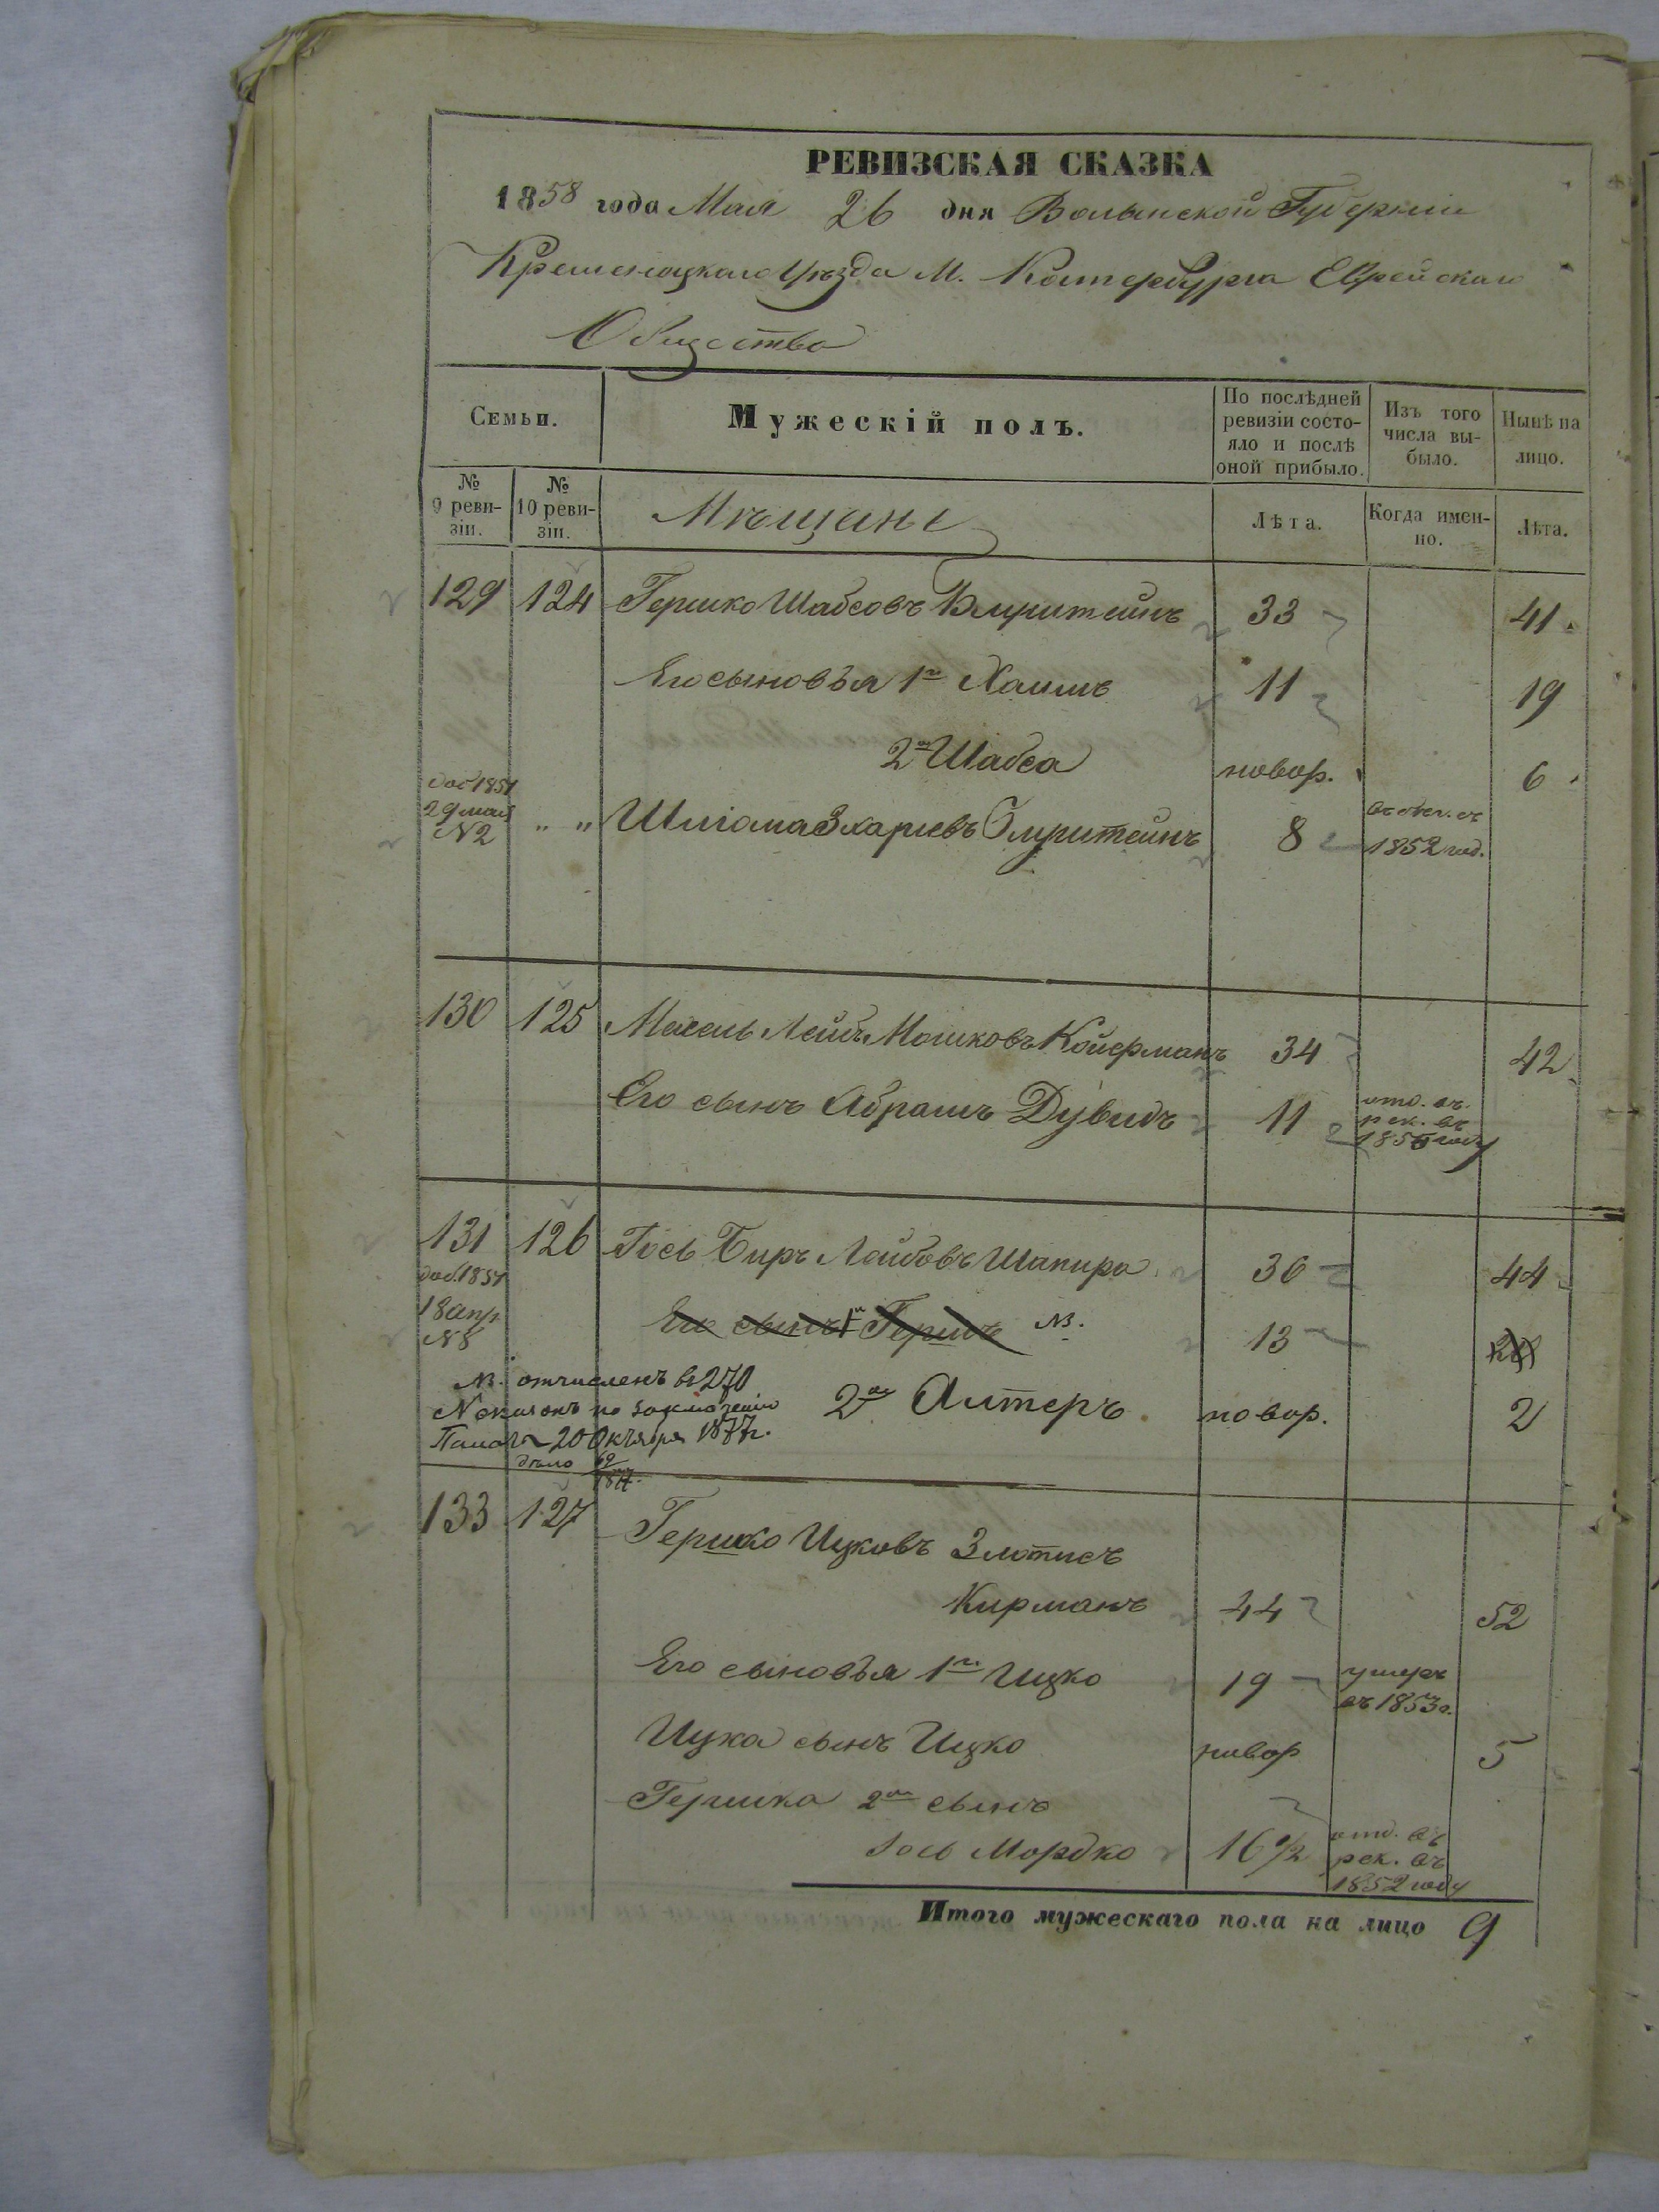 РЕВИЗСКАЯ СКАЗКА
1858 года Мая 26 дня Волынской Губерніи
Кременецкаго Уѣзда М. Катербурга Еврейскаго
Общества
Семьи.
Мужескій полъ.
По послѣдней ревизіи состояло и послѣ оной прибыло.
Изъ того числа выбыло.
Нынѣ на лицо.
№ 9 ревизіи.
№ 10 ревизіи.
Мѣщане
Лѣта.
Когда именно.
Лѣта.
129 124 Гершко Шабсовъ 33 41
Его сыновья 1й Хаимъ 11 19
2й Шабса новор. 6
доб 1851
29 мая
№2 " " Шліома 8 1852 год.
130 125 Лейбъ Мошковъ Койерманъ 34 42
Его сынъ Абрамъ Дувидъ 11 отд. въ рек. въ году
131 126 Іось Беръ Лейбовъ Шапиро 36 44
доб. 1851
18 апр.
№8
Его сынъ 1й Гершъ NB. 13
NB. отчисленъ въ 270
2й Алтеръ новор. 2
Палаты 20 Октября 1877г.
дѣло
133 127 Гершко Ицковъ Злотисъ
Кирманъ 44 52
Его сыновья 1й Ицко 19 умеръ въ 1853г.
Ицка сынъ Ицко новор 5
Гершка 2й сынъ
Іось Мордко 16 1/2 отд. въ рек. въ 1852 году
Итого мужескаго пола на лицо 9